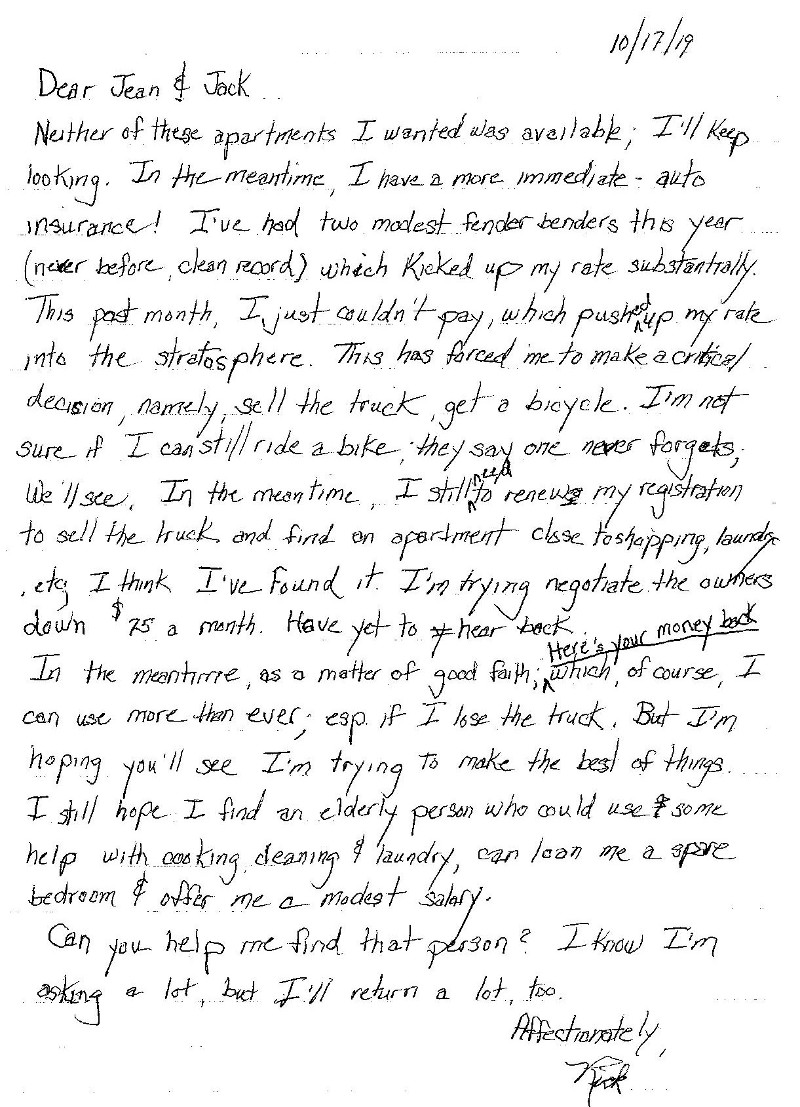 10/17/19
Dear Jean & Jack
Neither of these apartments I wanted was available; I'll keep
looking. In the meantime, I have a more immediate - auto
insurance! I've had two modest fender benders this year
(never before, clean record) which kicked up my rate substantially.
This past month, I just couldn't pay, which pushed up my rate
into the stratosphere. This has forced me to make a critical
decision, namely, sell the truck, get a bicycle. I'm not
sure if I can still ride a bike; they say one never forgets;
We'll see. In the meantime, I still need to renew my registration
to sell the truck and find an apartment close to shopping, laundry
, etc. I think I've found it. I'm trying negotiate the owners
down $75 a month. Have yet to hear back.
In the meantime, as a matter of good faith, Here's your money back which, of course, I
can use more than ever; esp. if I lose the truck. But I'm
hoping you'll see I'm trying to make the best of things.
I still hope I find an elderly person who could use some
help with cooking, cleaning & laundry, can loan me a spare
bedroom & offer me a modest salary.
Can you help me find that person? I know I'm
asking a lot, but I'll return a lot, too.
Affectionately,
Nick